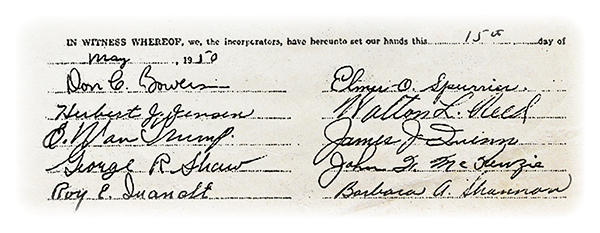 IN WITNESS WHEREOF, we, the incorporators, have hereunto set our hands this 15th day of
May, 1950
Don C. Bowers Elmer O. Spurrier
Herbert J. Jensen Walton L. Reed
Van Trump James J. Quinn
George R. Shaw John McKenzie
Roy E. Quandt Barbara A. Shannon